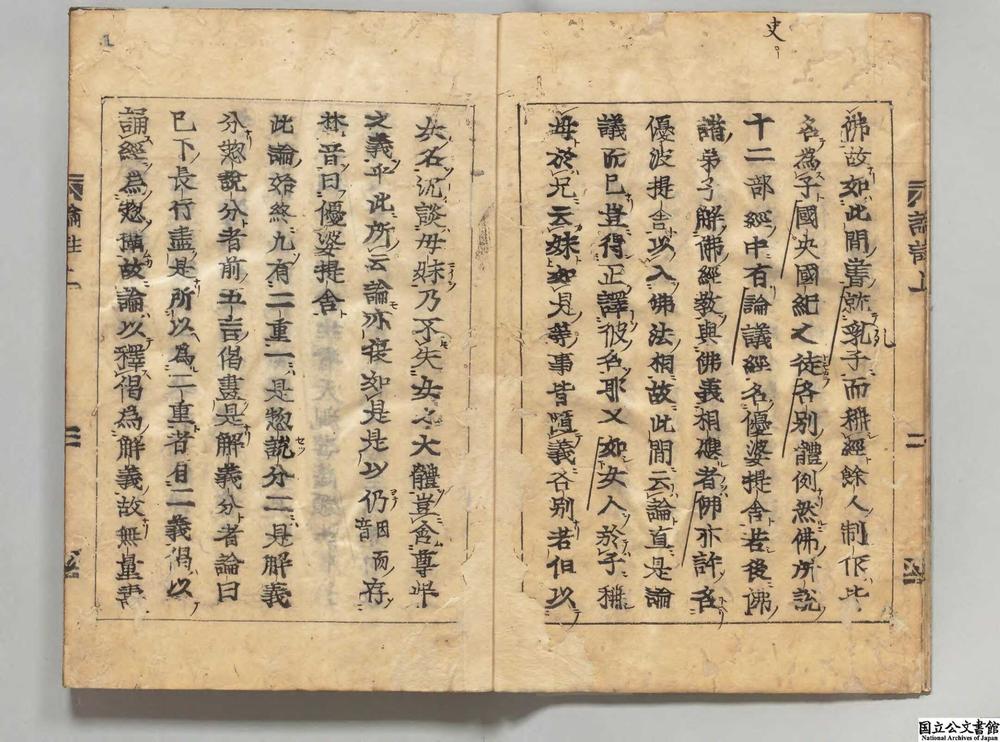 史
佛故如此間書就乳子而稱經餘人制作比
孔
名為子國央國紀之徒各別體例然佛所說
十二部經中有論議經名優婆提舍若後佛
諸弟子解佛經教與佛義相應者佛亦許名
優波提舍以入佛法相故此間云論直是論
議而已豈得正譯彼名耶又如女人於子稱
母於兄云妹如是等事皆隨義各別若但以
論註上
二
女名汎談母妹乃不失女之大體豈含尊卑
之義乎此所云論亦復如是是以仍因而存
音
梵音曰優婆提舍
此論始終凡有二重一是惣說分二是解義
分惣說分者前五言偈盡是解義分者論曰
已下長行盡是所以為二重者有二義偈以
誦經為惣攝故論以釋偈為解義故無量壽
論註上
三
国立公文書館
National Archives of Japan